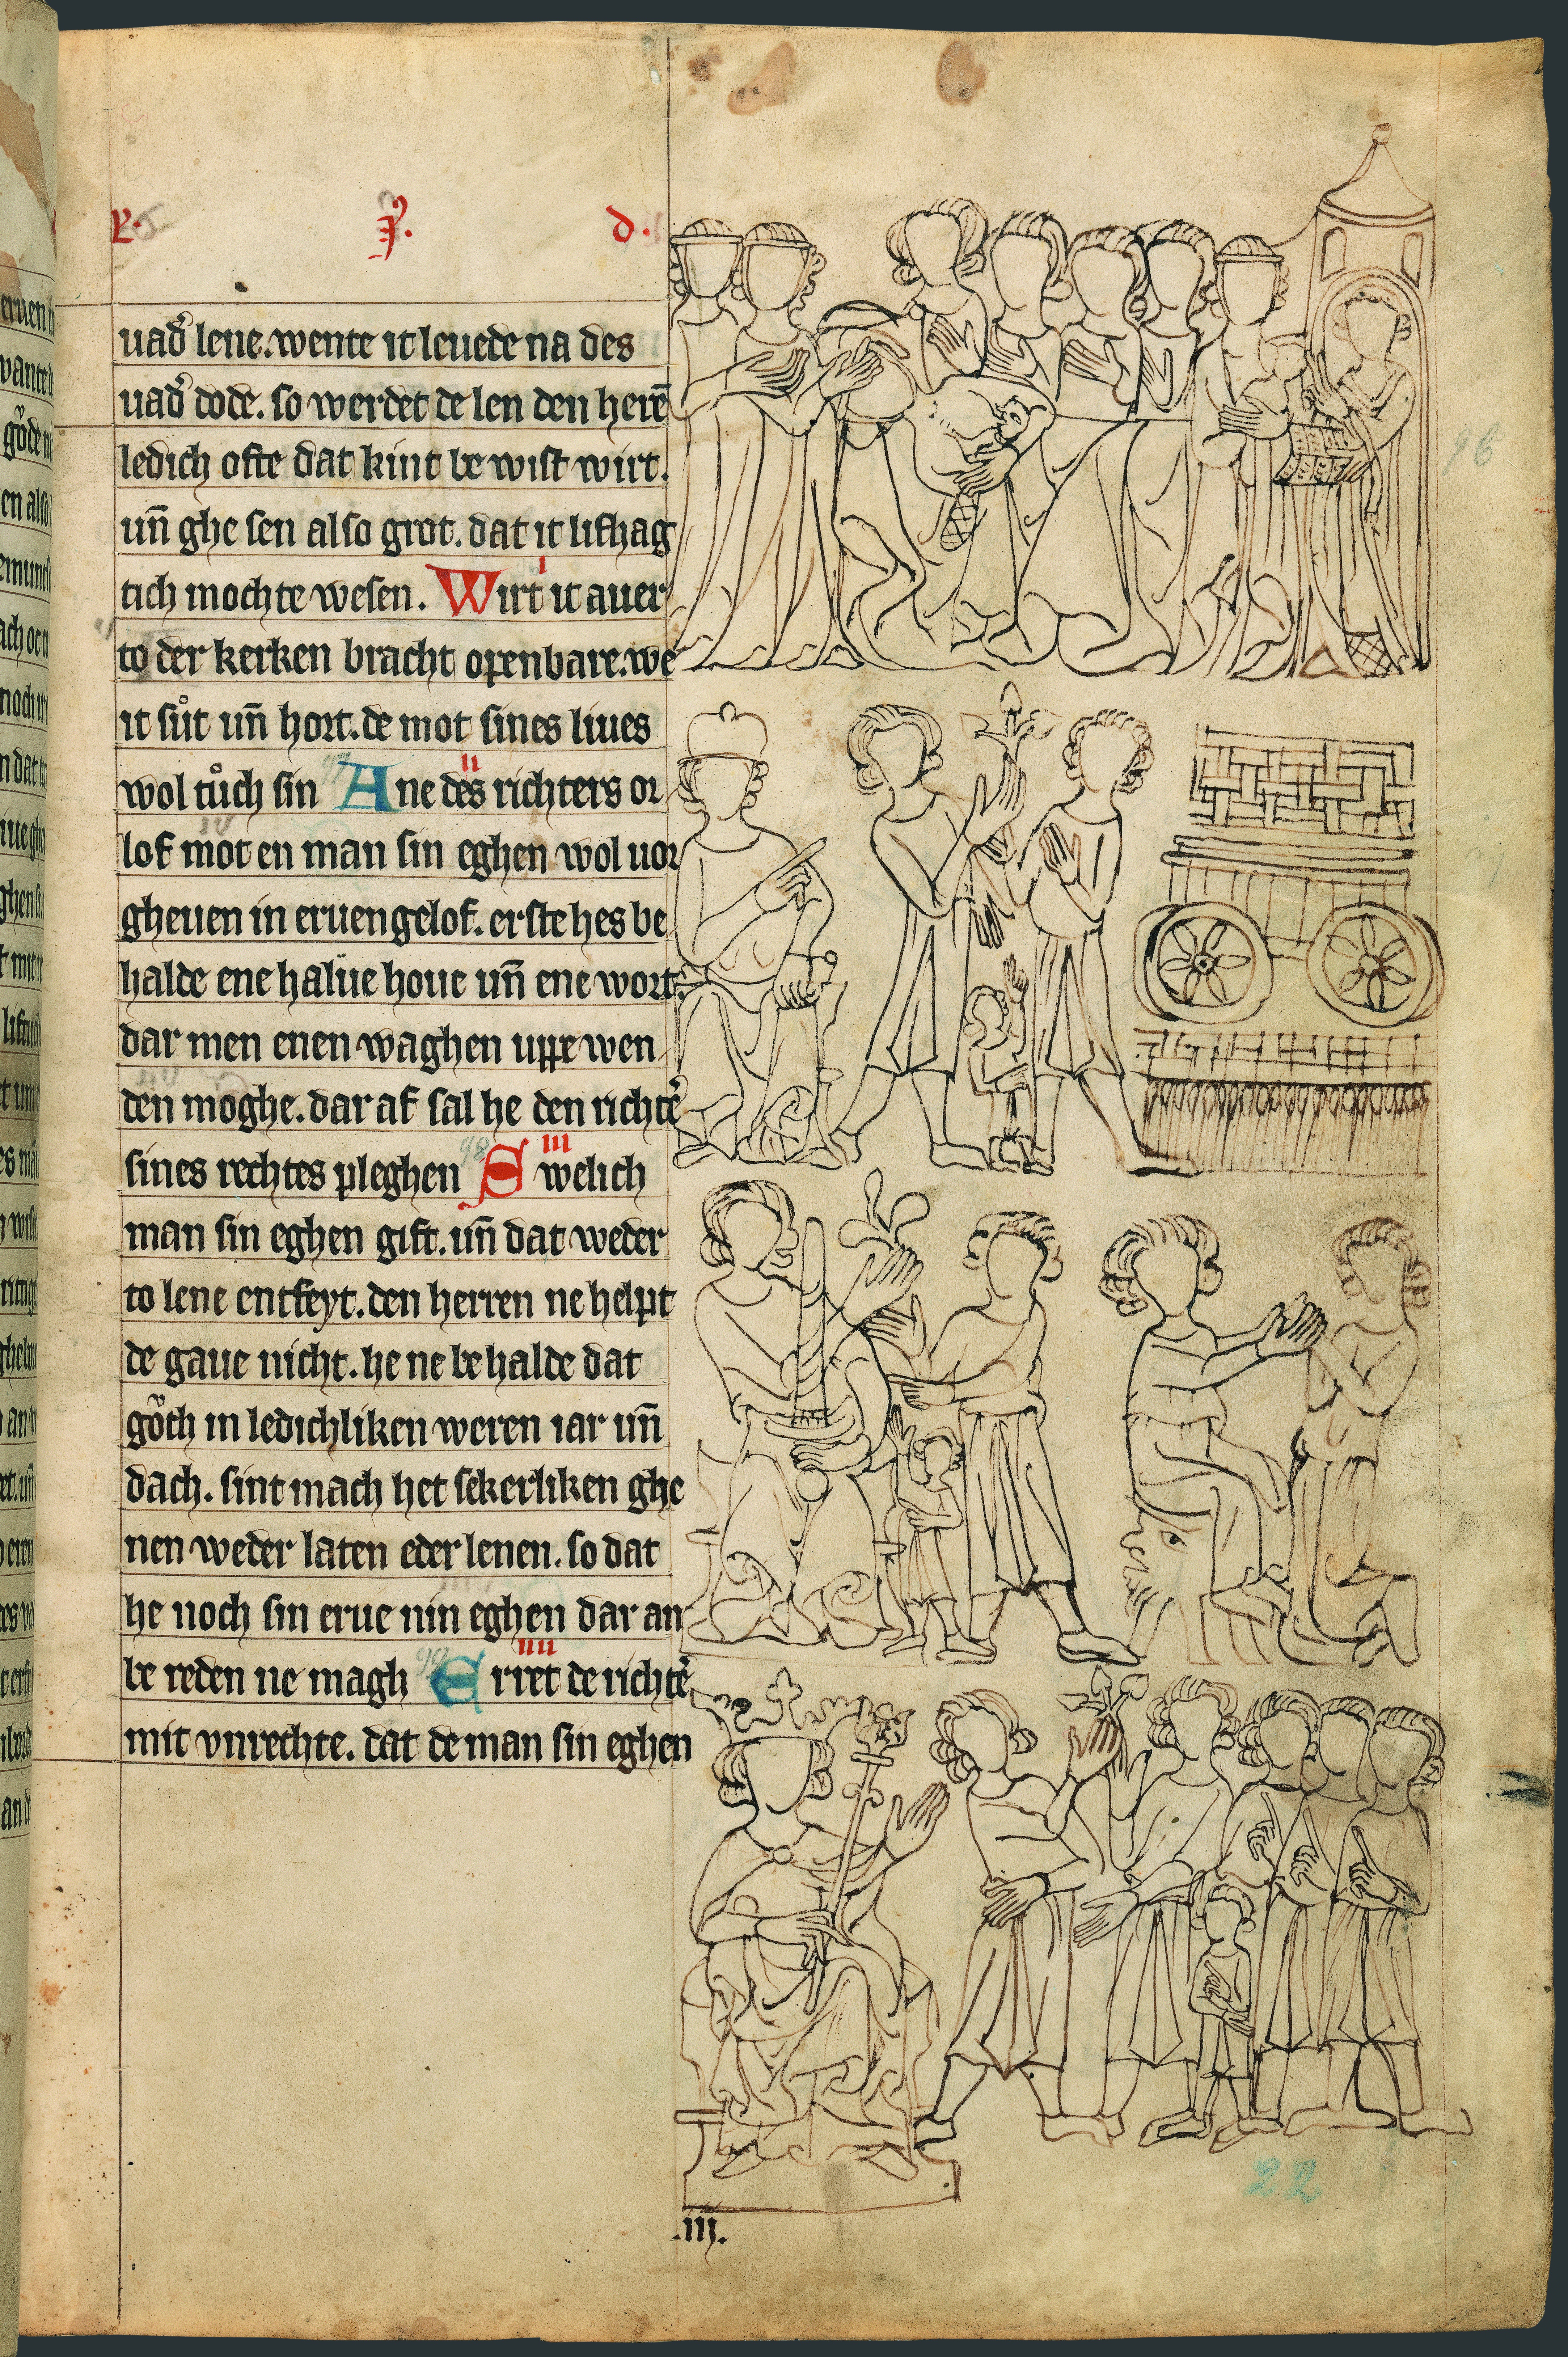 .I. d.
uad᷑ lene. wente it leuede na des
uad᷑ dode. so werdet de len den herē
ledich ofte dat kint be wist wirt.
un̄ ghe sen also grot. dat it lifhag
tich mochte wesen. Wirt it auer
to der kerken bracht openbare. we
it sůt un̄ hort. de mot sines liues
wol tůch sin Ane des richters or
lof mot en man sin eghen wol uor
gheuen in eruen gelof. erste hes be
halde ene halue houe un̄ ene wort.
dar men enen waghen uppe wen
den moghe. dar af sal he den richt᷑e
sines rechtes pleghen Swelich
man sin eghen gift. un̄ dat weder
to lene entfeyt. den herren ne helpt
de gaue nicht. he ne be halde dat
gǒth in ledichliken weren iar un̄
dach. sint mach het sekerliken ghe
nen weder laten eder lenen. so dat
he noch sin erue nin eghen dar an
be reden ne magh Erret de richt᷑e
mit vnrechte. dat de man sin eghen
i
ii
iii
iiii
96
98
22
.iij.